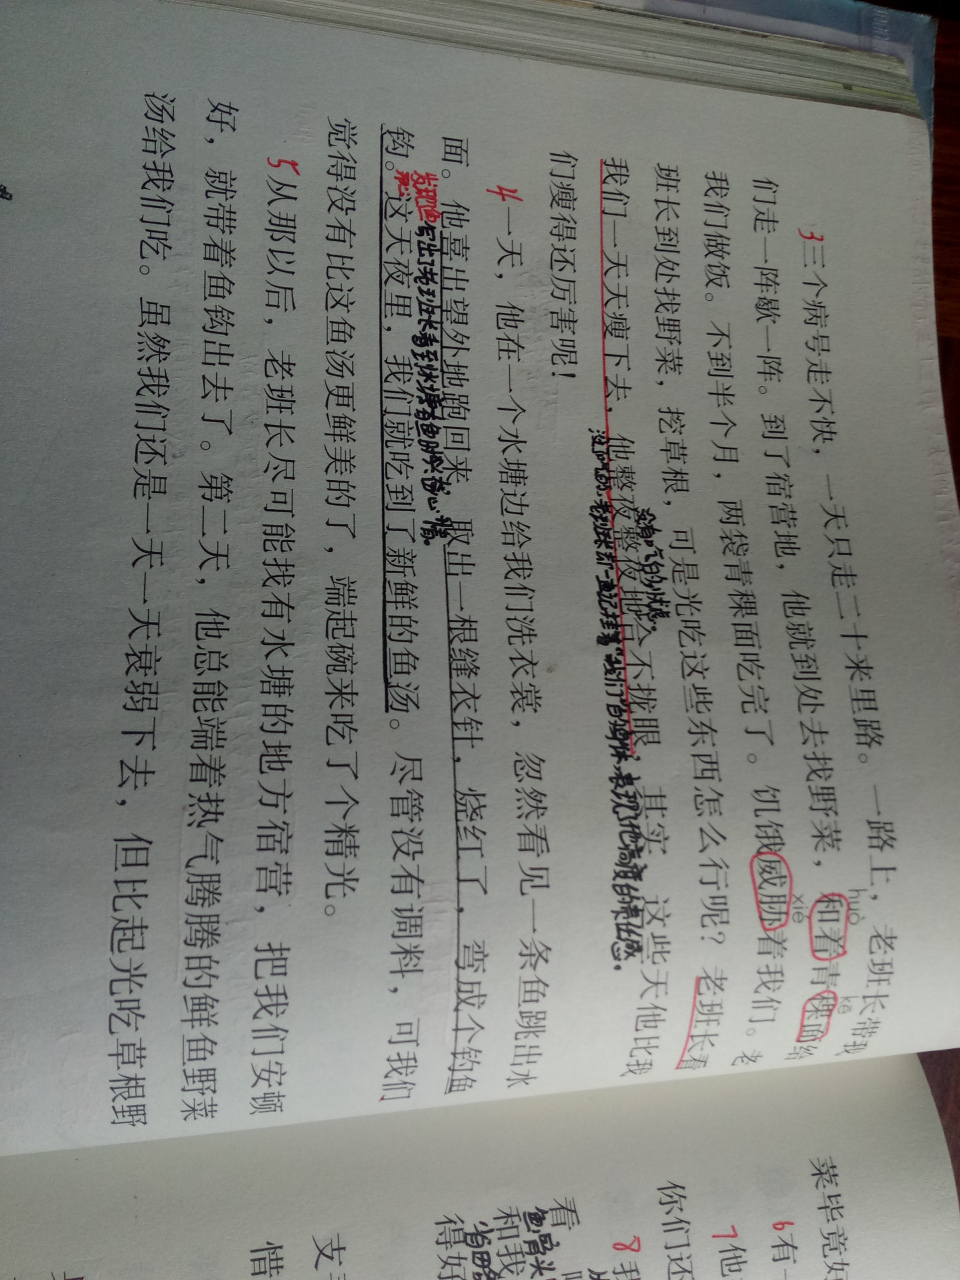 3三个病号走不快，一天只走二十来里路。一路上，老班长带我
们走一阵歇一阵。到了宿营地，他就到处去找野菜，和着青稞面给
huò
kē
我们做饭。不到半个月，两袋青稞面吃完了。饥饿威胁着我们。老
xié
班长到处找野菜，挖草根，可是光吃这些东西怎么行呢？老班长看
我们一天天瘦下去，他整夜整夜地合不拢眼，其实，这些天他比我
们瘦得还厉害呢！
4一天，他在一个水塘边给我们洗衣裳，忽然看见一条鱼跳出水
面。他喜出望外地跑回来，取出一根缝衣针，烧红了，弯成个钓鱼
写出了老班长看到水塘有鱼时兴奋心情。
钩。这天夜里，我们就吃到了新鲜的鱼汤。尽管没有调料，可我们
觉得没有比这鱼汤更鲜美的了，端起碗来吃了个精光。
5从那以后，老班长尽可能找有水塘的地方宿营，把我们安顿
好，就带着鱼钩出去了。第二天，他总能端着热气腾腾的鲜鱼野菜
汤给我们吃。虽然我们还是一天一天衰弱下去，但比起光吃草根野
菜毕竟好
6有一
7他
你们还
8我
看
和我
得好
支
惜